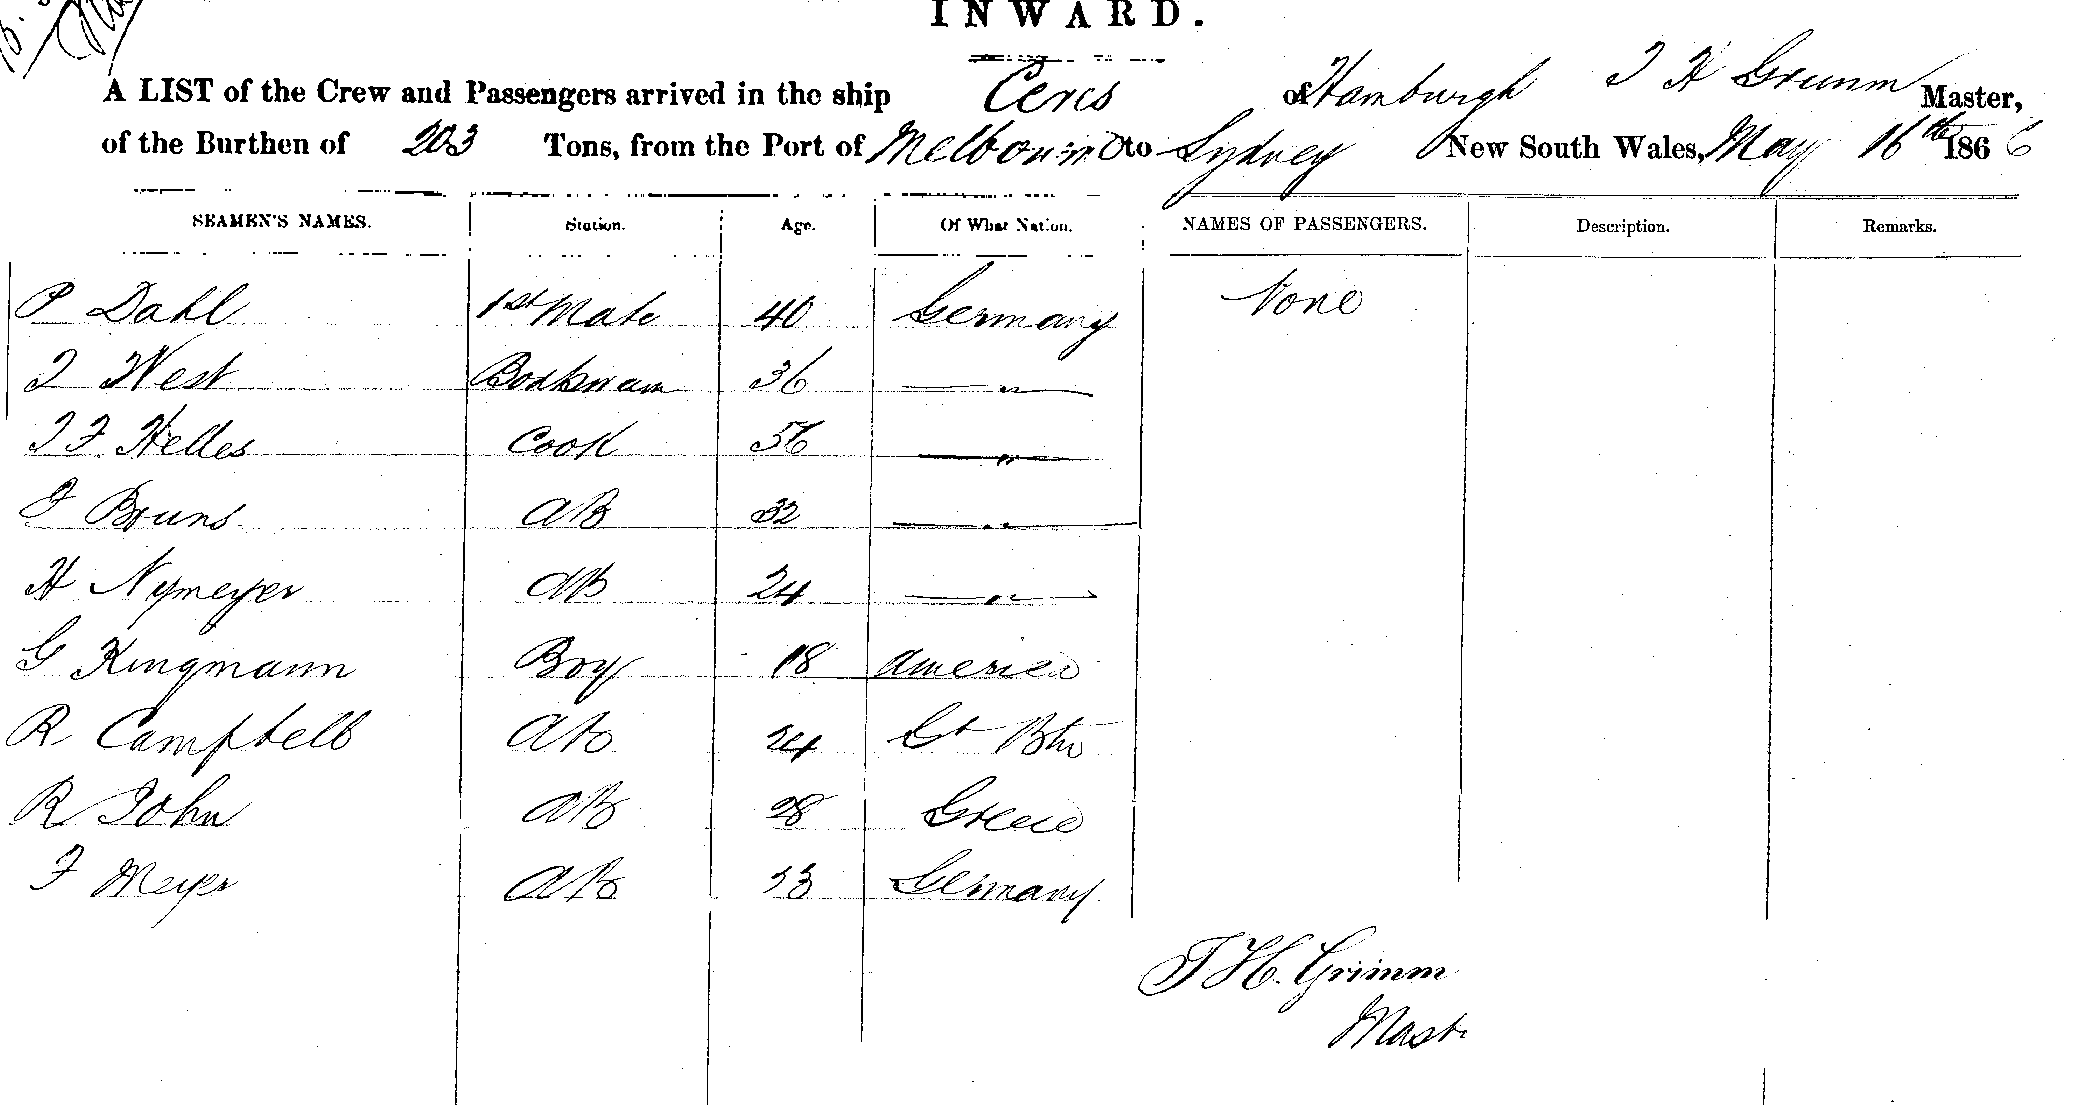 INWARD.
A LIST of the Crew and Passengers arrived in the ship Ceres of Hamburgh J H Grimm Master,
of the Burthen of 203 Tons, from the Port of Melbourne to Sydney New South Wales, May 16th 1866
SEAMEN'S NAMES. Station. Age. Of What Nation. NAMES OF PASSENGERS. Description. Remarks.
P Dahl 1st Mate 40 Germany None
J West 36 — " —
J F Helles Cook 56 — " —
F Bruns AB 32 — " —
H Nymeyer AB 24 — " —
G Kingmann Boy 18 America
R Campbell AB 24 Gt Btn
R John AB 28 Greece
F Meyer AB 23 Germany
J H. Grimm
Mast.